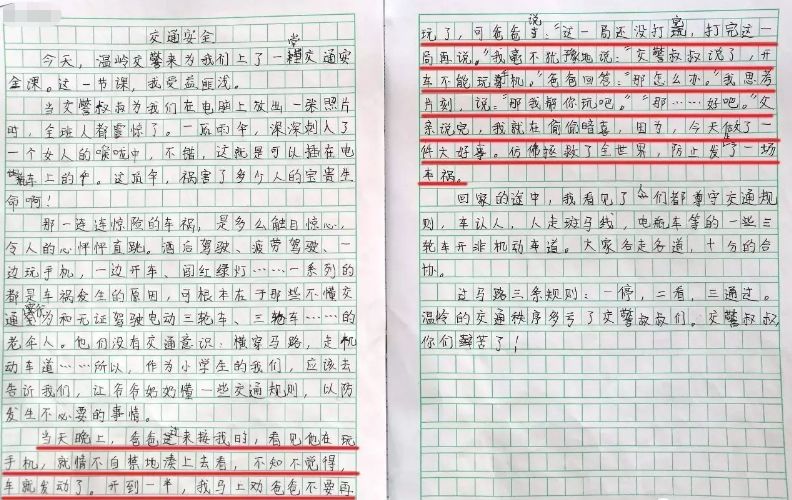 交通安全
今天，温岭交警来为我们上了一堂交通安
全课。这一节课，我受益匪浅。
当交警叔叔为我们在电脑上放出一张照片
时，全班人都震惊了。一把雨伞，深深刺入了
一个女人的喉咙中，不错，这就是可以插在电
瓶车上的伞。这顶伞，祸害了多少人的宝贵生
命啊！
那一连连惊险的车祸，是多么触目惊心，
令人的心怦怦直跳。酒后驾驶、疲劳驾驶、一
边玩手机，一边开车、闯红绿灯……一系列的
都是车祸发生的原因，可根本在于那些不懂交
通行为和无证驾驶电动三轮车、三轮车……的
老年人。他们没有交通意识：横穿马路，走机
动车道……所以，作为小学生的我们，应该去
告诉我们，让爷爷奶奶懂一些交通规则，以防
发生不必要的事情。
当天晚上，爸爸过来接我时，看见他在玩
手机，就情不自禁地凑上去看，不知不觉得，
车就发动了。开到一半，我马上劝爸爸不要再
玩了，可爸爸说："这一局还没打完，打完这一
局再说。"我毫不犹豫地说："交警叔叔说了，开
车不能玩手机。"爸爸回答："那怎么办。"我思考
片刻，说："那我帮你玩吧。""那……好吧。"父
亲说完，我就在偷偷暗喜，因为，今天做了一
件大好事。仿佛拯救了全世界，防止发生了一场
车祸。
回家的途中，我看见了人们都遵守交通规
则，车让人，人走斑马线，电瓶车等的一些三
轮车开非机动车道。大家各走各道，十分的合
协。
过马路三条规则：一停，二看，三通过。
温岭的交通秩序多亏了交警叔叔们。交警叔叔，
你们辛苦了！